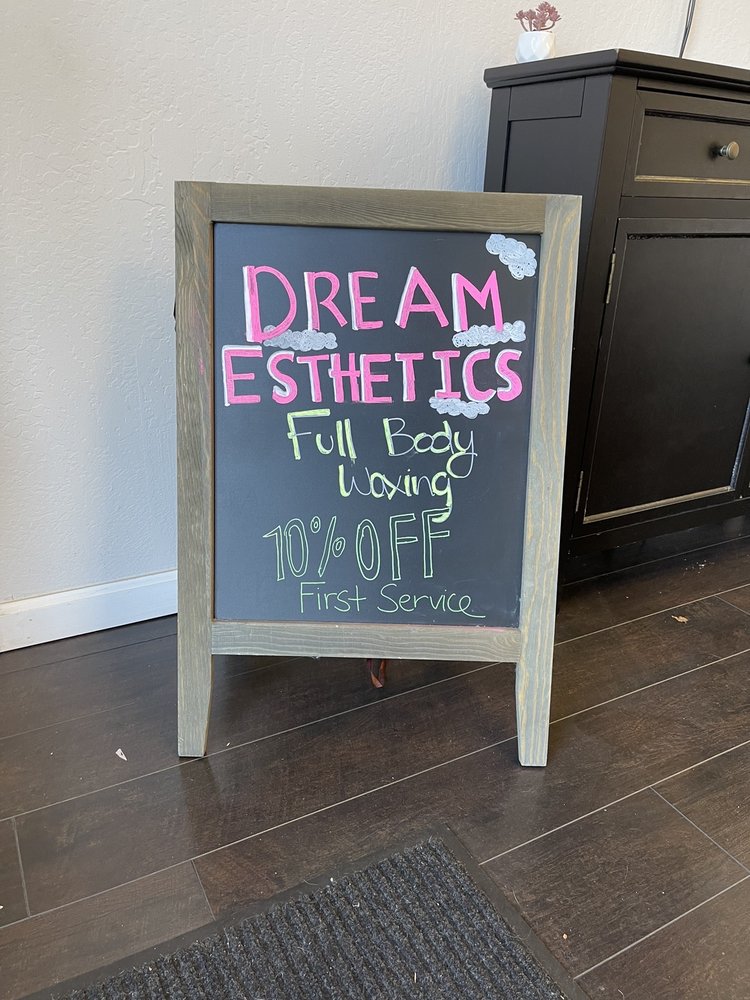 DREAM
ESTHETICS
Full Body
Waxing
10% OFF
First Service